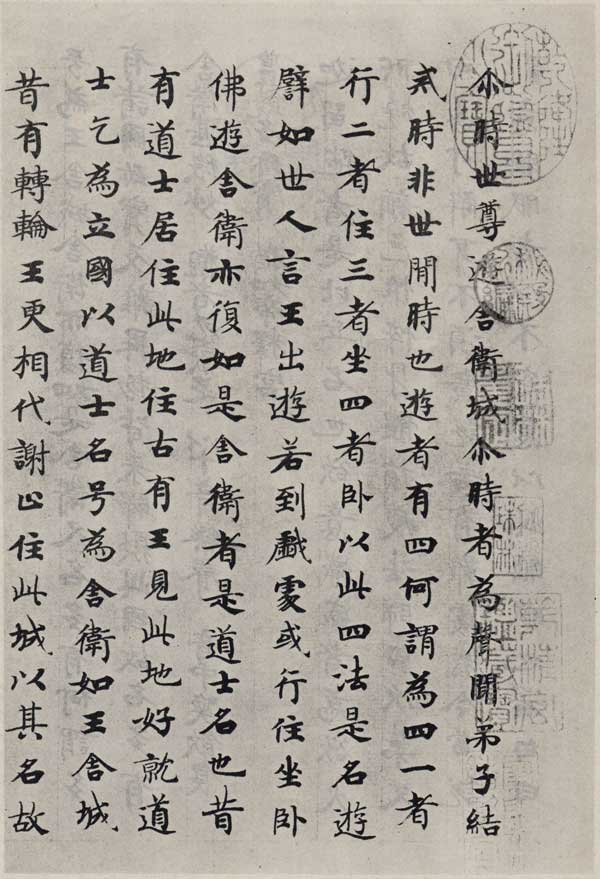 尒時世尊遊舍衛城尒時者為聲聞弟子結
戒時非世閒時也遊者有四何謂為四一者
行二者住三者坐四者卧以此四法是名遊
譬如世人言王出遊若到戲處或行住坐卧
佛遊舍衛亦復如是舍衛者是道士名也昔
有道士居住此地住古有王見此地好就道
士乞為立國以道士名号為舍衛如王舍城
昔有轉輪王更相代謝止住此城以其名故